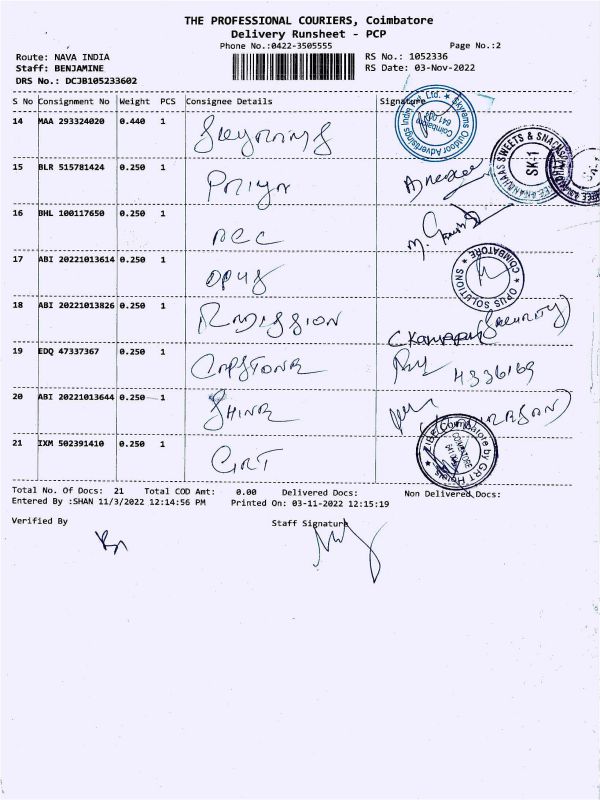 THE PROFESSIONAL COURIERS, Coimbatore
Delivery Runsheet - PCP
Phone No.:0422-3505555
Page No.:2
Route: NAVA INDIA
RS No.: 1052336
Staff: BENJAMINE
RS Date: 03-Nov-2022
DRS No.: DCJB105233602
S No Consignment No Weight PCS Consignee Details Signature
14 MAA 293324020 0.440 1
15 BLR 515781424 0.250 1 Priya
16 BHL 100117650 0.250 1 ACC
17 ABI 20221013614 0.250 1 OPUS
OPUS SOLUTIONS * COIMBATORE *
18 ABI 20221013826 0.250 1 RADISSION (SECURITY)
19 EDQ 47337367 0.250 1 CAPSTONE
20 ABI 20221013644 0.250 1 SHINE
21 IXM 502391410 0.250 1 GRT
Zibe Coimbatore by GRT Hotels
Total No. Of Docs: 21 Total COD Amt: 0.00 Delivered Docs: Non Delivered Docs:
Entered By :SHAN 11/3/2022 12:14:56 PM Printed On: 03-11-2022 12:15:19
Verified By Staff Signature